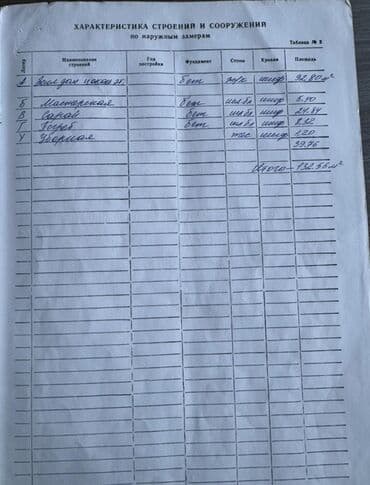 ХАРАКТЕРИСТИКА СТРОЕНИЙ И СООРУЖЕНИЙ
по наружным замерам
Таблица № 2
Литер Наименование строений Год постройки Фундамент Стены Кровля Площадь
А Жил дом цокол эт. бет шиф 92.80 м²
Б Мастерская бет шл бл шиф 5.40
В Сарай бет шл бл шиф 24.84
Г Погреб бет шл бл шиф 8.32
У Уборная тес шиф 1.20
39.76
Итого – 132.56 м²